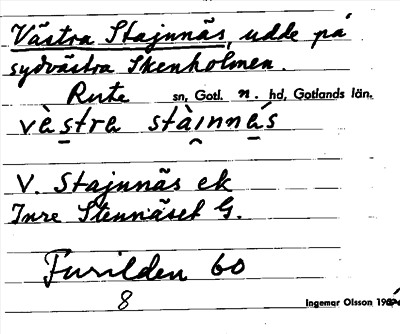 Västra Stajnnäs, udde på
sydvästra Skenholmen.
Rute sn, Gotl. n. hd, Gotlands län.
vèstra stàınnás
V. Stajnnäs ek
Inre Stennäset G.
Furilden 60
8
Ingemar Olsson